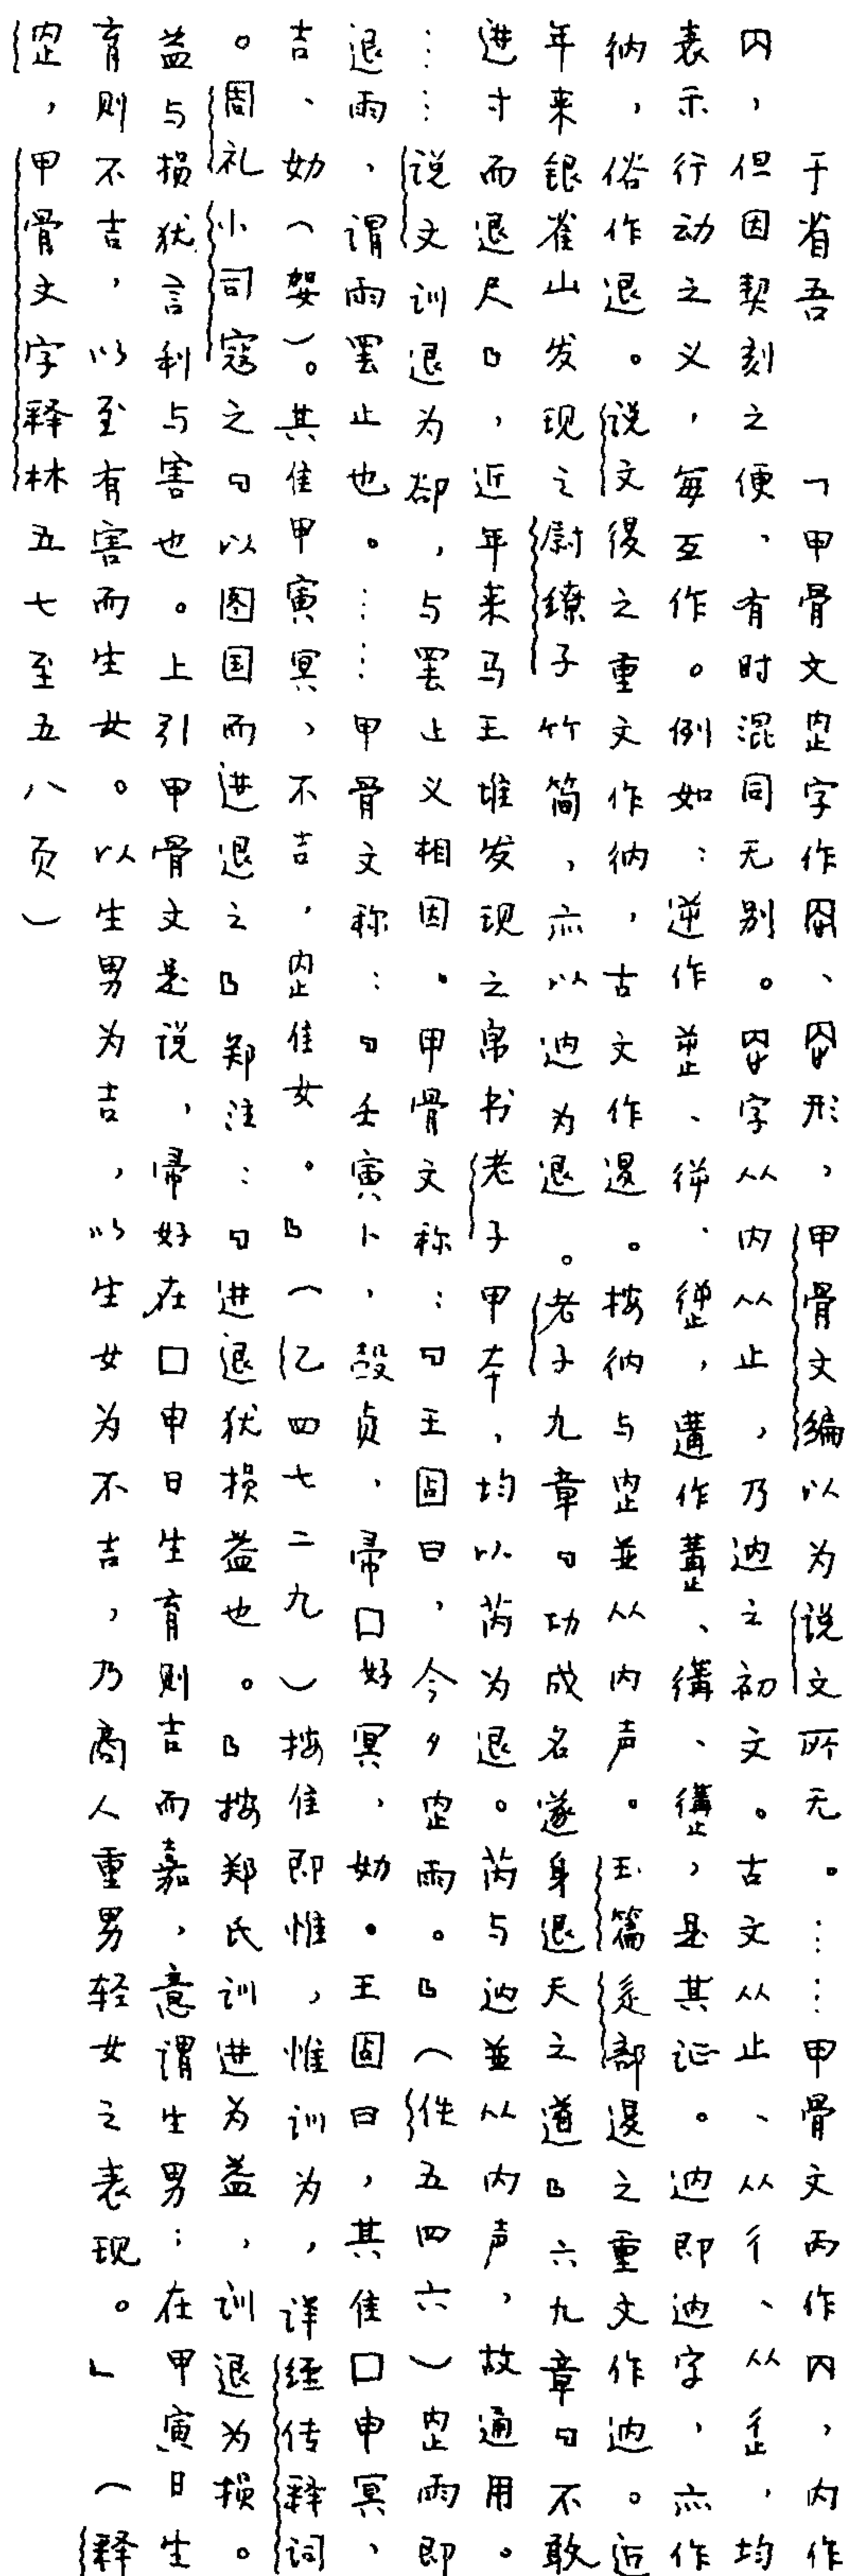 于省吾　「甲骨文𡧍字作、形，甲骨文编以为说文所无。……甲骨文丙作内，内作
内，但因契刻之便，有时混同无别。字从内从止，乃迡之初文。古文从止、从彳、从，均
表示行动之义，每互作。例如：逆作、徉、，遘作、、，是其证。即字，亦作
纳，俗作退。说文復之重文作纳，古文作。按纳与並从内声。玉篇辵部之重文作。近
年来银雀山发现之尉缭子竹简，亦以为退。老子九章『功成名遂身退天之道』六九章『不敢
进寸而退尺』，近年来马王堆发现之帛书老子甲本，均以芮为退。芮与並从内声，故通用。
……说文训退为却，与罢止义相因。甲骨文称：『王固曰，今夕雨。』（佚五四六）雨即
退雨，谓雨罢止也。……甲骨文称：『壬寅卜，㱿贞，帚口好冥，妫。王固曰，其隹口申冥、
吉、妫（娶）。其隹甲寅冥，不吉，隹女。』（乙四七二九）按隹即惟，惟训为，详经传释词
。周礼小司寇之『以图国而进退之』郑注：『进退犹损益也。』按郑氏训进为益，训退为损。
益与损犹言利与害也。上引甲骨文是说，帚好在口申日生育则吉而嘉，意谓生男；在甲寅日生
育则不吉，以至有害而生女。以生男为吉，以生女为不吉，乃商人重男轻女之表现。」（释
，甲骨文字释林五七至五八页）